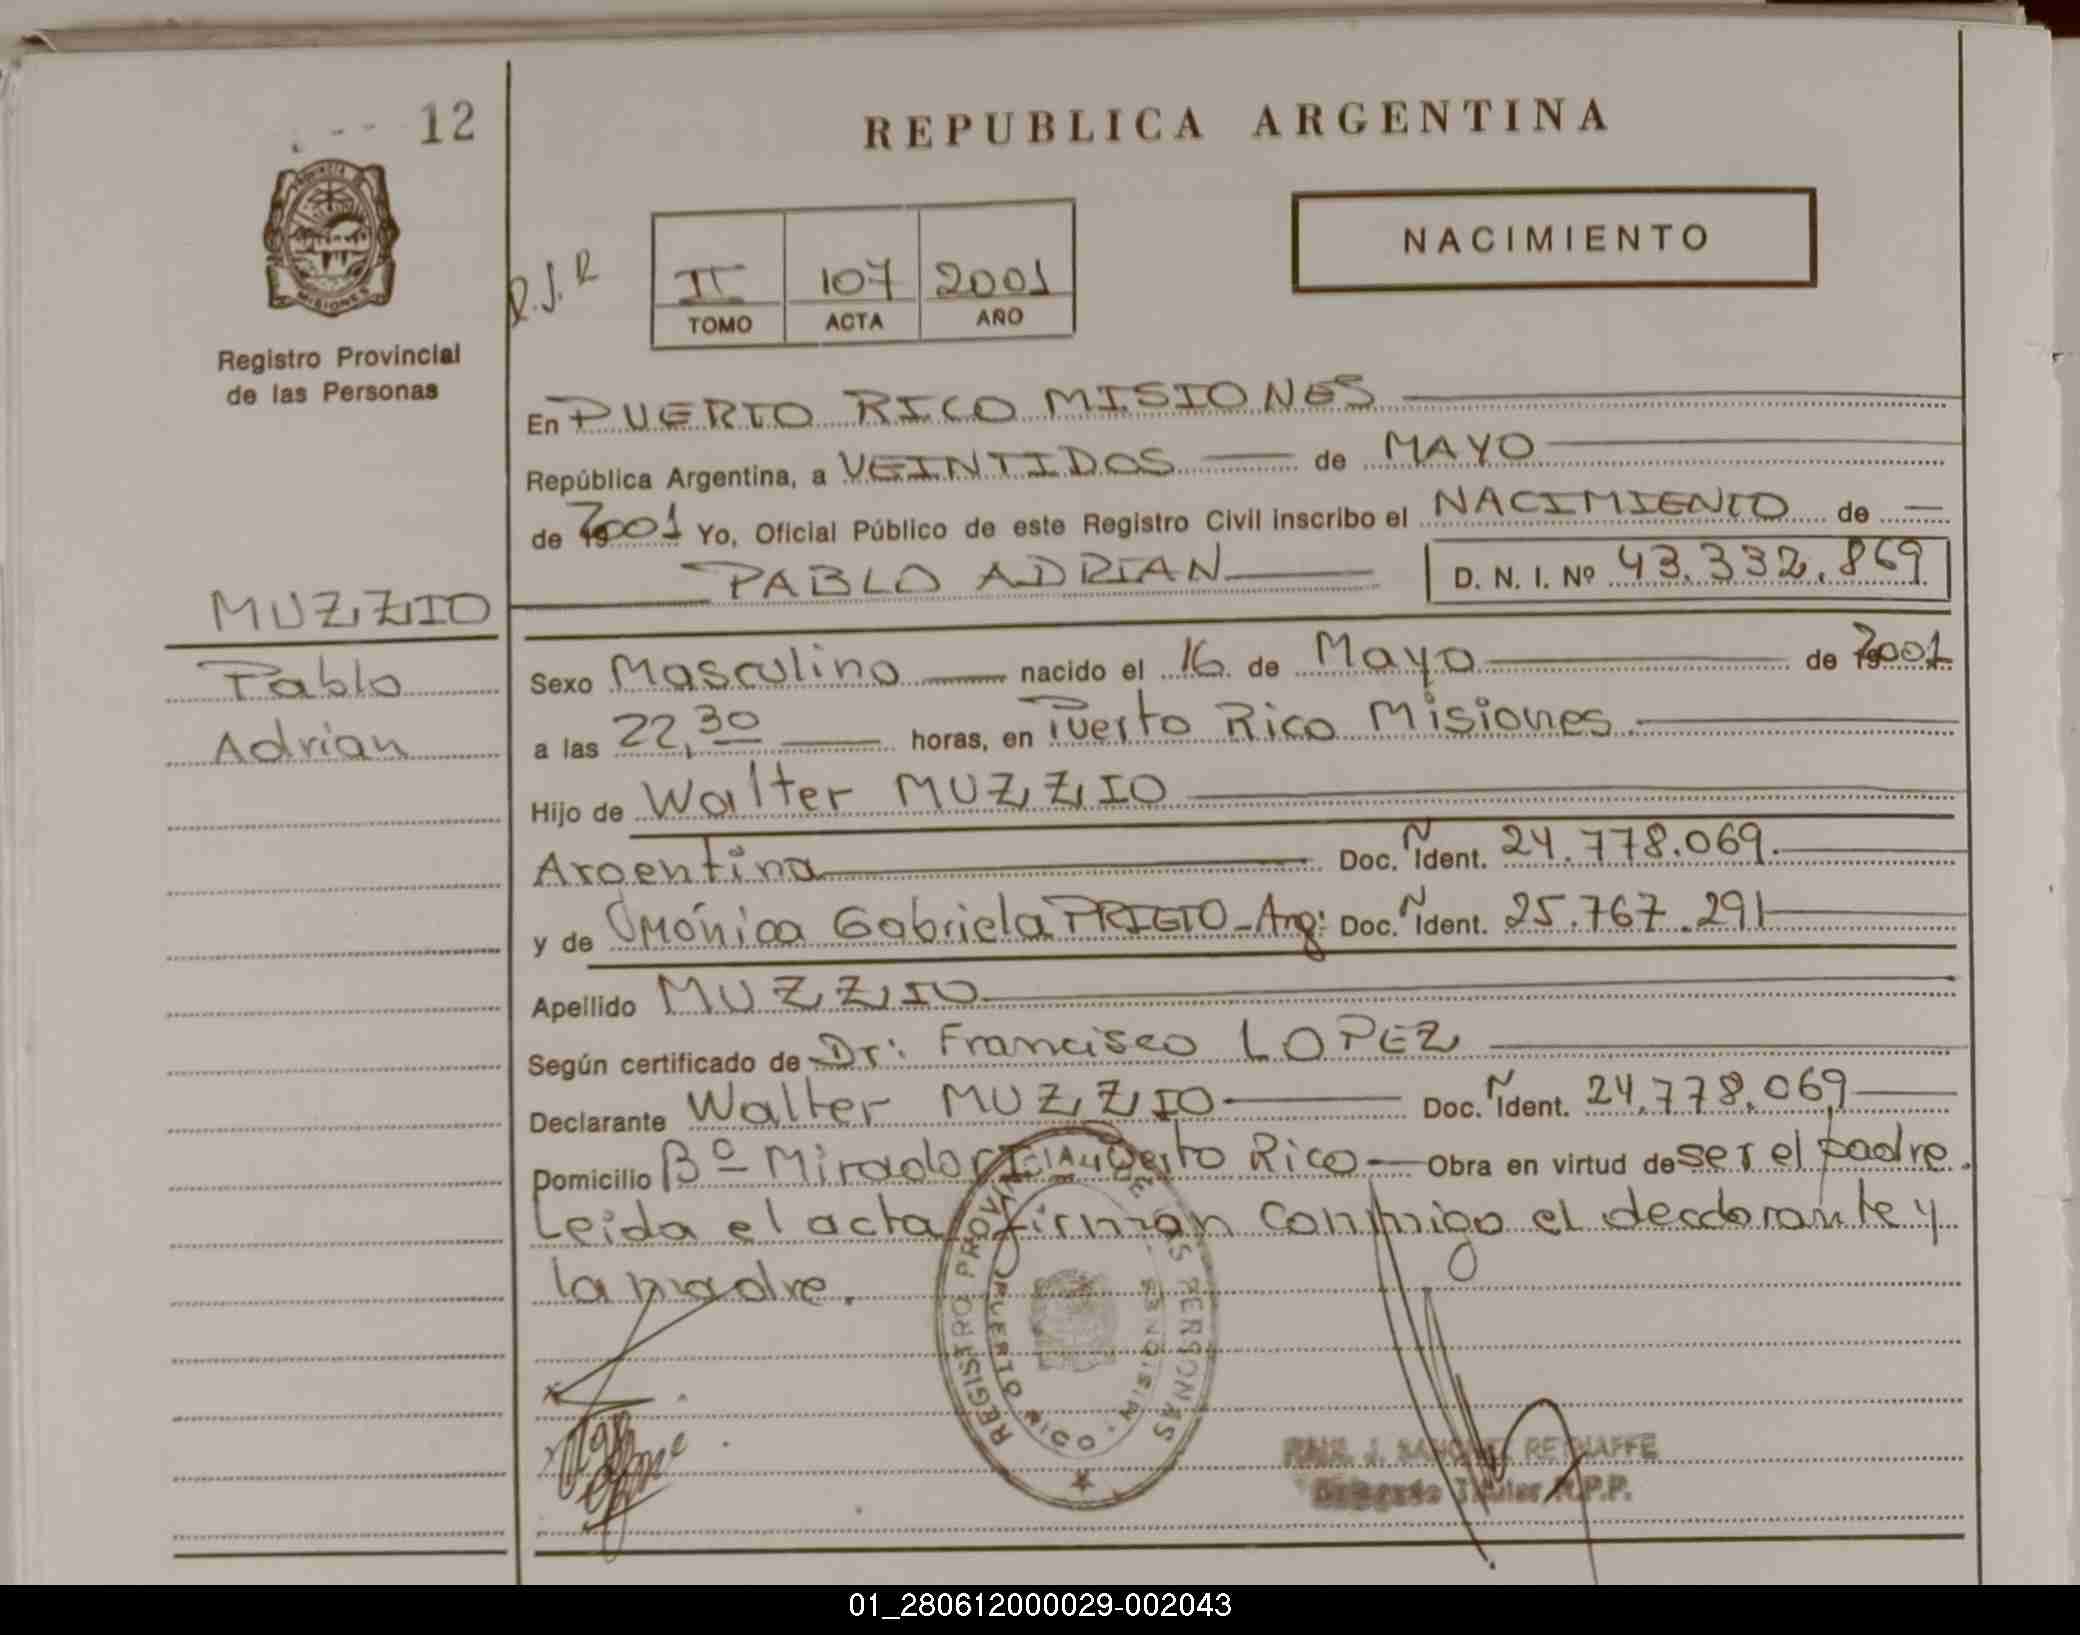 12
REPUBLICA ARGENTINA
NACIMIENTO
PROVINCIA DE
MISIONES
Registro Provincial
de las Personas
R.J.R
II 107 2001
TOMO ACTA AÑO
En PUERTO RICO MISIONES
República Argentina, a VEINTIDOS de MAYO
de 2001 Yo, Oficial Público de este Registro Civil inscribo el NACIMIENTO de
PABLO ADRIAN D. N. I. Nº 43.332.869
MUZZIO
Pablo
Adrian
Sexo Masculino nacido el 16 de Mayo de 2001
a las 22,30 horas, en Puerto Rico Misiones.
Hijo de Walter MUZZIO
Argentina Doc. Ñ Ident. 24.778.069.
y de Mónica Gabriela PRIETO - Arg: Doc. Ñ Ident. 25.767.291
Apellido MUZZIO
Según certificado de Dr: Francisco LOPEZ
Declarante Walter MUZZIO Doc. Ñ Ident. 24.778.069
Domicilio Bº Mirador Puerto Rico Obra en virtud de ser el padre.
Leida el acta firman conmigo el declarante y
la madre.
REGISTRO PROVINCIAL DE LAS PERSONAS
PUERTO RICO - MISIONES
RAUL J. SANCHEZ REYNAFFE
Delegado Titular R.P.P.
01_280612000029-002043